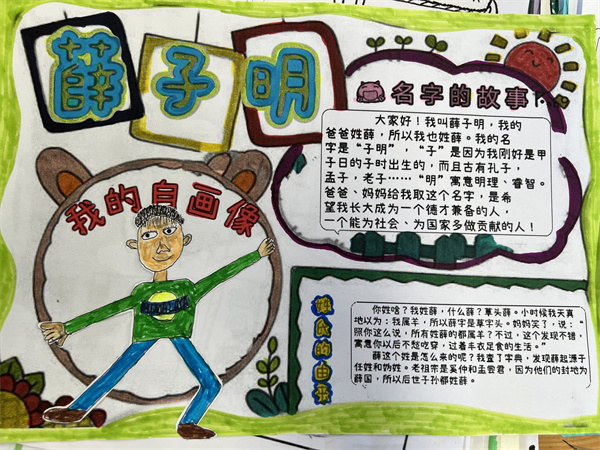 薛子明
名字的故事
大家好！我叫薛子明，我的
爸爸姓薛，所以我也姓薛。我的名
字是“子明”，“子”是因为我刚好是甲
子日的子时出生的，而且古有孔子，
孟子，老子……“明”寓意明理、睿智。
爸爸、妈妈给我取这个名字，是希
望我长大成为一个德才兼备的人，
一个能为社会、为国家多做贡献的人！
我的自画像
姓氏的由来
你姓啥？我姓薛，什么薛？草头薛。小时候我天真
地以为：我属羊，所以薛字是草字头。妈妈笑了，说：“
照你这么说，所有姓薛的都属羊？不过，这个发现不错，
寓意你以后不愁吃穿，过着丰衣足食的生活。”
薛这个姓是怎么来的呢？我查了字典，发现薛起源于
任姓和妫姓。老祖宗是奚仲和孟尝君，因为他们的封地为
薛国，所以后世子孙都姓薛。